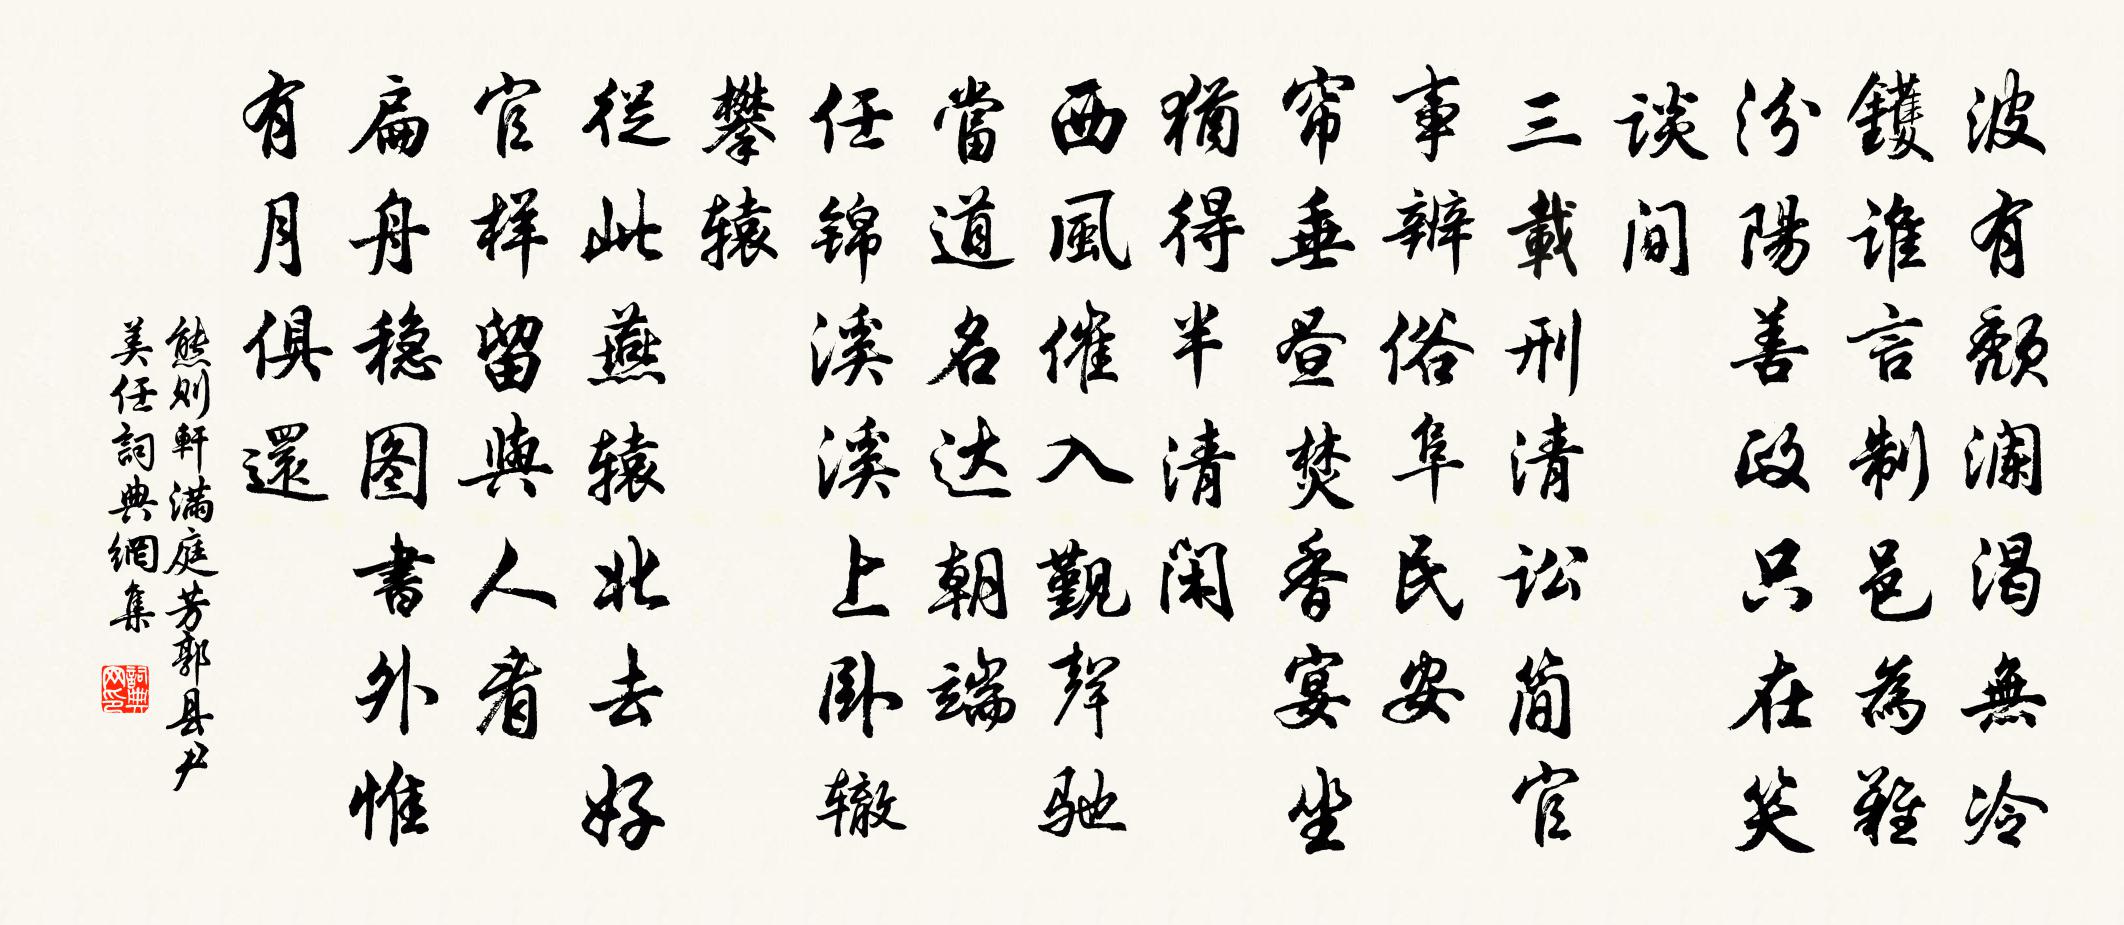 波有颓澜渴無冷
鑊谁言制邑為難
汾陽善政只在笑
谈间
三載刑清讼简官
事辦俗阜民安
帘垂昼焚香宴坐
猶得半清闲
西風催入觐聲驰
當道名达朝端
任锦溪溪上卧辙
攀辕
從此燕辕北去好
官样留與人看
扁舟稳图書外惟
有月俱還
熊则軒满庭芳郭县尹
美任詞典網集
詞典网印